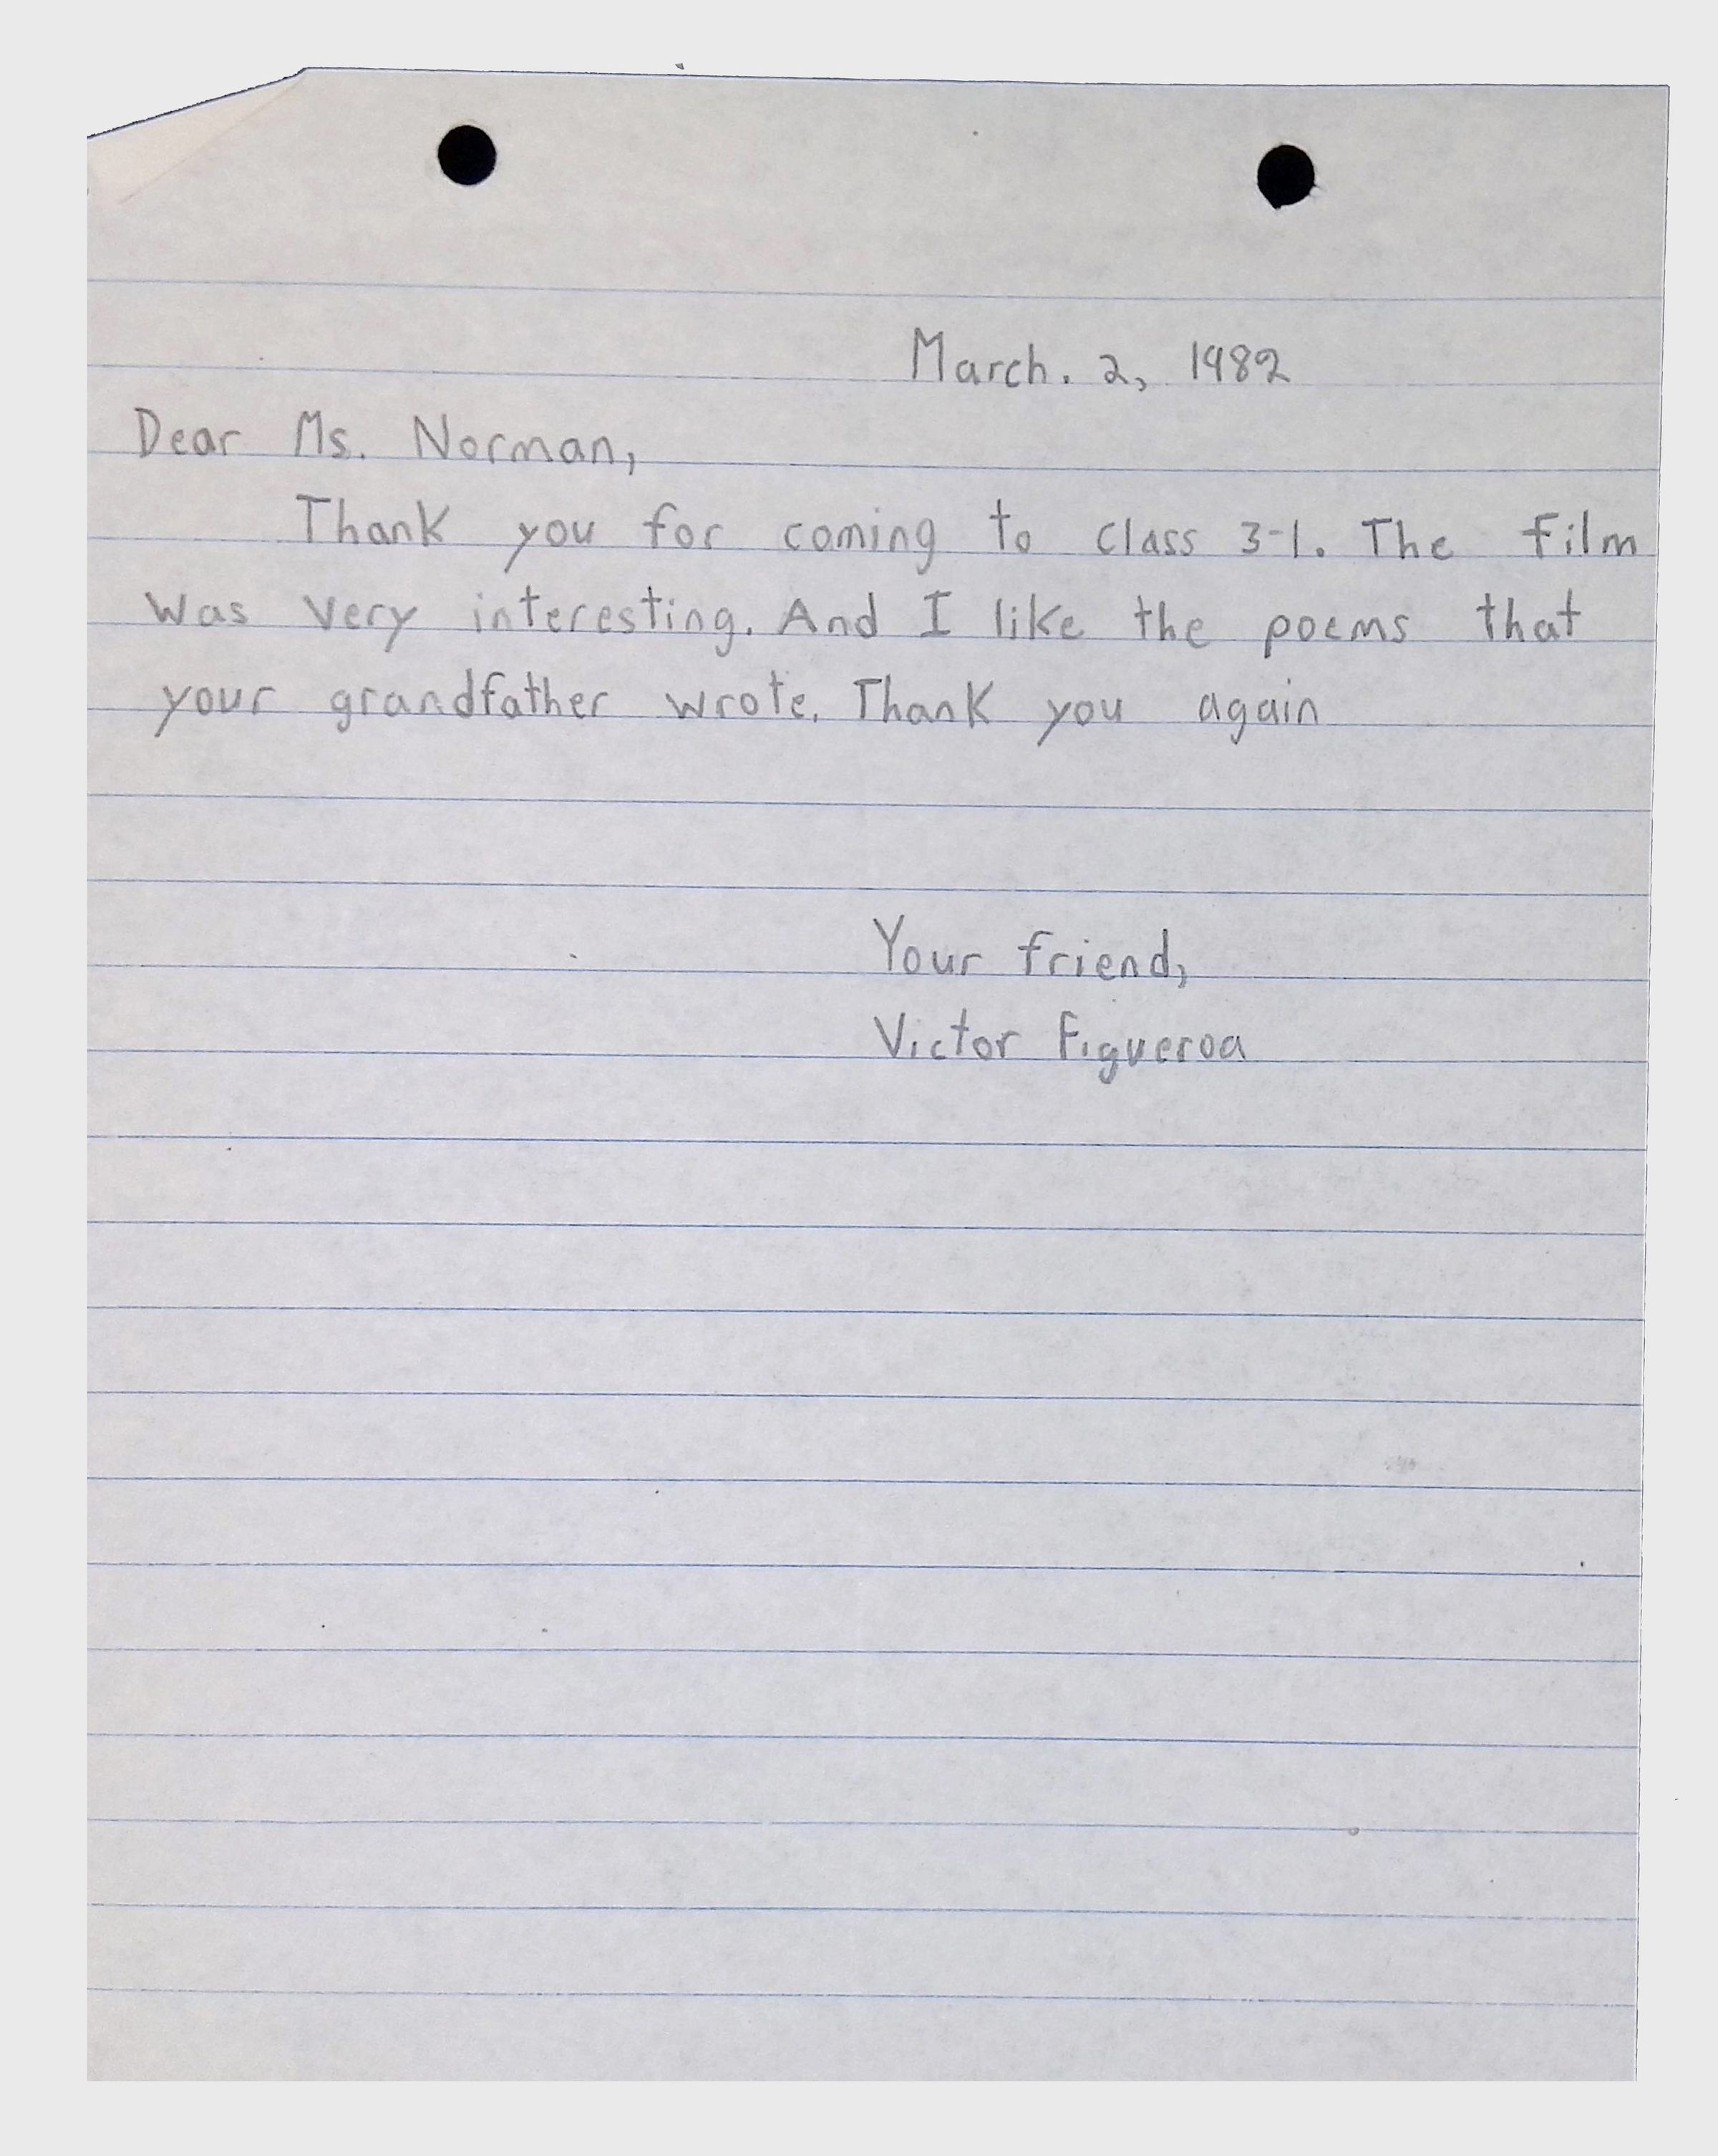 March. 2, 1982
Dear Ms. Norman,
Thank you for coming to class 3-1. The film
was very interesting. And I like the poems that
your grandfather wrote. Thank you again
Your friend,
Victor Figueroa